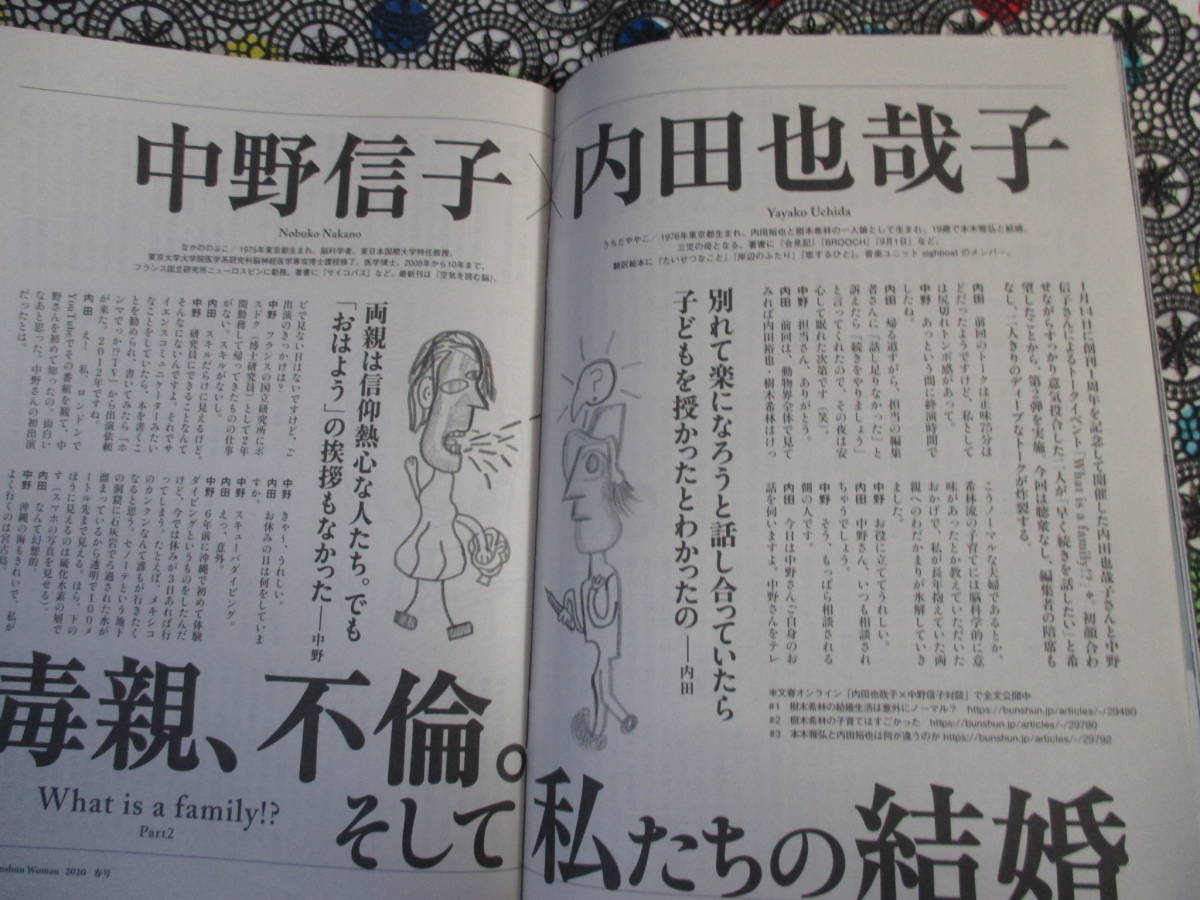 内田也哉子
Yayako Uchida
うちだややこ／1976年東京都生まれ。内田裕也と樹木希林の一人娘として生まれ、19歳で本木雅弘と結婚。
三児の母となる。著書に『会見記』『BROOCH』『9月1日』など。
翻訳絵本に『たいせつなこと』『岸辺のふたり』『恋するひと』。音楽ユニット sighboat のメンバー。
×
中野信子
Nobuko Nakano
なかののぶこ／1975年東京都生まれ。脳科学者。東日本国際大学特任教授。
東京大学大学院医学系研究科脳神経医学専攻博士課程修了。医学博士。2008年から10年まで、
フランス国立研究所ニューロスピンに勤務。著書に『サイコパス』など。最新刊は『空気を読む脳』。
1月14日に創刊1周年を記念して開催した内田也哉子さんと中野
信子さんによるトークイベント「What is a family!?」*。初顔合わ
せながらすっかり意気投合した二人が「早く続きを話したい」と希
望したことから、第2弾を実施。今回は聴衆なし、編集者の陪席も
なし。二人きりのディープなトークが炸裂する。
内田　前回のトークは正味75分ほ
どだったようですけど、私として
は尻切れトンボ感があって。
中野　あっという間に終演時間で
したね。
内田　帰る道すがら、担当の編集
者さんに「話し足りなかった」と
訴えたら「続きをやりましょう」
と言ってくれたので、その夜は安
心して眠れた次第です（笑）。
中野　担当さん、ありがとう。
内田　前回は、動物界全体で見て
みれば内田裕也・樹木希林はけっ
こうノーマルな夫婦であるとか、
希林流の子育てには脳科学的に意
味があったとか教えていただいた
おかげで、私が長年抱えていた両
親へのわだかまりが氷解していき
ました。
中野　お役に立ててうれしい。
内田　中野さん、いつも相談され
ちゃうでしょう。
中野　そう、もっぱら相談される
側の人です。
内田　今日は中野さんご自身のお
話を伺いますよ。中野さんをテレ
別れて楽になろうと話し合っていたら
子どもを授かったとわかったの——内田
*文春オンライン「内田也哉子×中野信子対談」で全文公開中
#1　樹木希林の結婚生活は意外にノーマル？　https://bunshun.jp/articles/-/29480
#2　樹木希林の子育てはすごかった　https://bunshun.jp/articles/-/29780
#3　本木雅弘と内田裕也は何が違うのか https://bunshun.jp/articles/-/29792
両親は信仰熱心な人たち。でも
「おはよう」の挨拶もなかった——中野
ビで見ない日はないですけど、ご
出演のきっかけは？
中野　フランスの国立研究所にポ
スドク（博士研究員）として2年
間勤務して帰ってきたものの仕事
がない。スキルがないし。
内田　スキルだらけに見えるけど。
中野　研究員にできることなんて
そんなにないんですよ。それでサ
イエンスコミュニケーターみたい
なことをしていたら、本を書くこ
とを勧められ、書いてみたら『ホ
ンマでっか!?TV』から出演依頼
が来た。2012年ですね。
内田　え〜、私、ロンドンで
YouTubeでその番組を観て、中
野さんを初めて知ったの。面白い
なあと思った。中野さんの初出演
だったとは。
中野　きゃ〜、うれしい。
内田　お休みの日は何をしていま
すか。
中野　スキューバダイビング。
内田　えっ、意外。
中野　6年前に沖縄で初めて体験
ダイビングというものをしたんだ
けど、今では休みが3日あれば行
ってしまう。たとえば、メキシコ
のカンクンなんて誰もが行きたく
なると思う。セノーテという地下
の洞窟に石灰岩でろ過された水が
溜まっているから透明で100メ
ートル先まで見える。ほら、下の
ほうに見えるのは硫化水素の層で
す（スマホの写真を見せる）。
内田　なんて幻想的。
中野　沖縄の海もきれいで、私が
よく行くのは宮古島。
毒親、不倫。
そして私たちの結婚
What is a family!?
Part2
nshun Woman 2020 春号